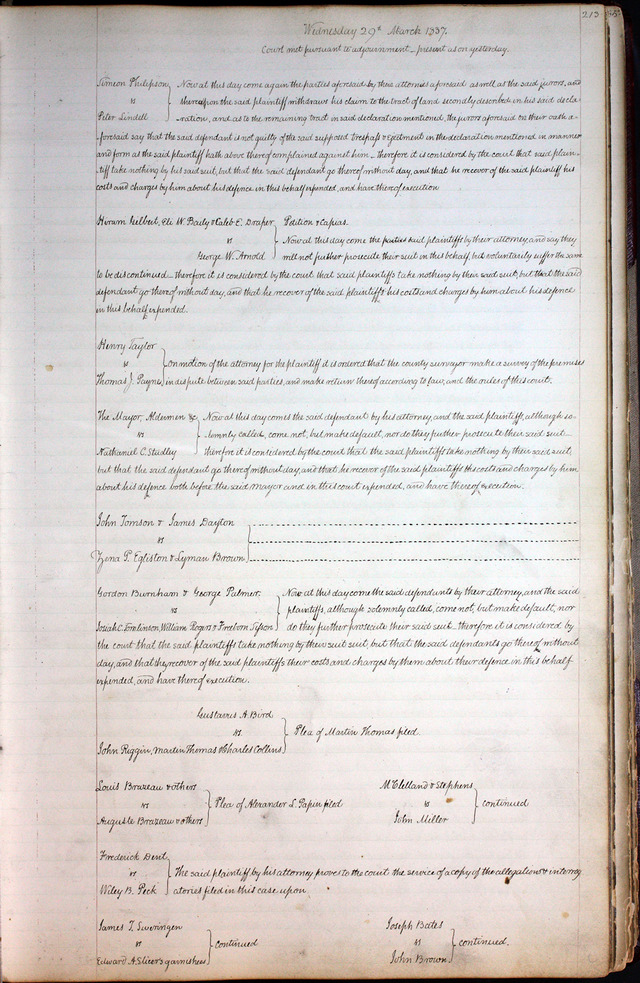 213
Wednesday 29th March 1837.
Court met pursuant to adjournment - present as on yesterday.
Simeon Philipson
vs
Peter Lindell
Now at this day come again the parties aforesaid by their attornies aforesaid as well as the said jurors, and
thereupon the said plaintiff withdraws his claim to the tract of land secondly described in his said decla-
ration, and as to the remaining tract in said declaration mentioned, the jurors aforesaid on their oath a-
foresaid say that the said defendant is not guilty of the said supposed trespass & ejectment in the declaration mentioned in manner
and form as the said plaintiff hath above thereof complained against him - therefore it is considered by the court that said plain-
tiff take nothing by his said suit, but that the said defendant go thereof without day, and that he recover of the said plaintiff his
costs and charges by him about his defence in this behalf expended, and have thereof execution
Hiram Gilbert, Eli W. Baily & Caleb E. Draper
vs
George W. Arnold
Petition & capias.
Now at this day come the said plaintiffs by their attorney, and say they
will not further prosecute their suit in this behalf, but voluntarily suffer the same
to be discontinued - therefore it is considered by the court that said plaintiffs take nothing by their said suit, but that the said
defendant go thereof without day, and that he recover of the said plaintiffs his costs and charges by him about his defence
in this behalf expended.
Henry Taylor
vs
Thomas J. Payne
On motion of the attorney for the plaintiff it is ordered that the county surveyor make a survey of the premises
in dispute between said parties, and make return thereof according to law, and the rules of this court.
The Mayor, Aldermen &c
vs
Nathaniel C. Studley
Now at this day comes the said defendant by his attorney, and the said plaintiffs, although so-
lemnly called, come not, but make default, nor do they further prosecute their said suit -
therefore it is considered by the court that the said plaintiffs take nothing by their said suit,
but that the said defendant go thereof without day, and that he recover of the said plaintiffs the costs and charges by him
about his defence both before the said Mayor and in this court expended, and have thereof execution.
John Tomson & James Dayton
vs
Zina P. Egliston & Lyman Brown
Gordon Burnham & George Palmer
vs
Josiah C. Tomlinson, William Rogers & Freeborn Sisson
Now at this day come the said defendants by their attorney, and the said
plaintiffs, although solemnly called, come not, but make default, nor
do they further prosecute their said suit. therefore it is considered by
the court that the said plaintiffs take nothing by their suit suit, but that the said defendants go thereof without
day, and that they recover of the said plaintiffs their costs and charges by them about their defence in this behalf
expended, and have thereof execution.
Gustavus A. Bird
vs
John Riggin, Martin Thomas & Charles Collins
Plea of Martin Thomas filed.
Louis Brazeau & others
vs
Auguste Brazeau & others
Plea of Alexander L. Papin filed
McClelland & Stephens
vs
John Miller
continued
Frederick Dent
vs
Wiley B. Peck
The said plaintiff by his attorney proves to the court the service of a copy of the allegations & interrog
atories filed in this case upon
James T. Sweringen
vs
Edward A. Slicer's garnishees
continued
Joseph Bates
vs
John Brown
continued.